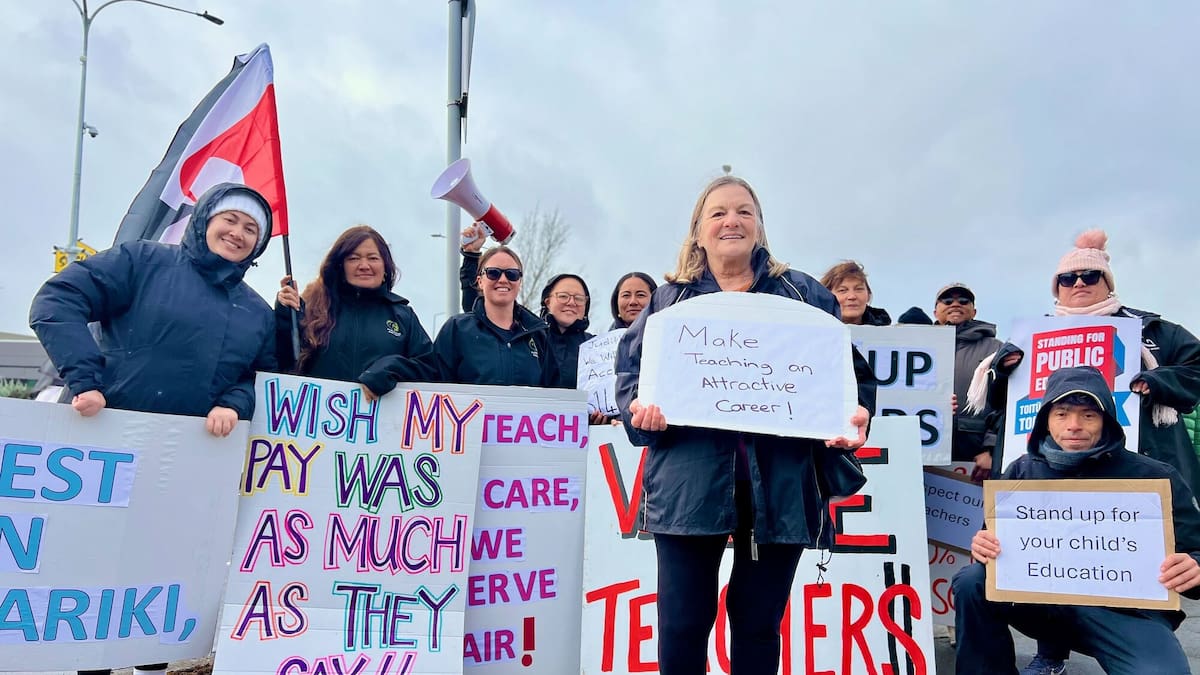 EST
N
ARIKI,
WISH MY
PAY WAS
AS MUCH
AS THEY
SAY!!
TEACH,
CARE,
WE
ERVE
AIR!
Make
Teaching an
Attractive
Career!
TEACHERS
UP
STANDING FOR
PUBLIC
ED
TOITŪ
spect our
eachers
Stand up for
your child's
Education